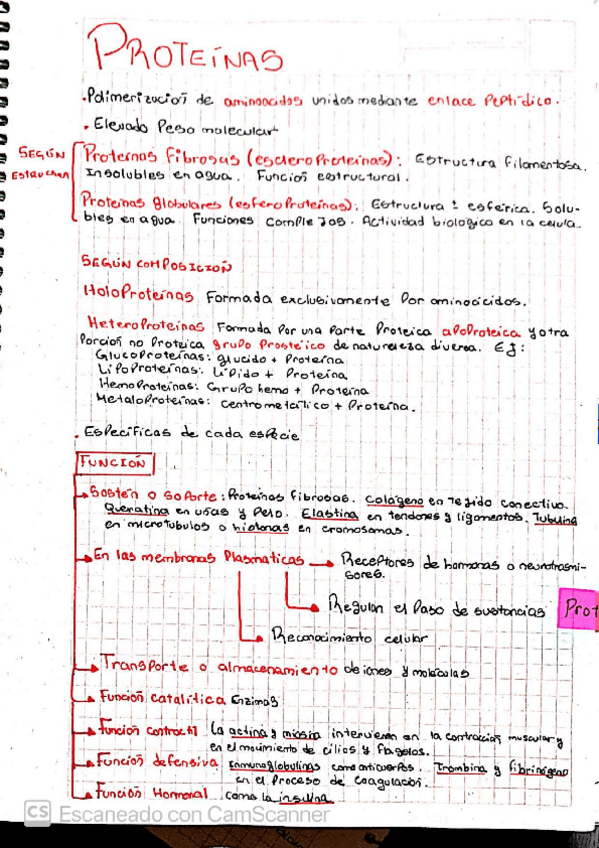 PROTEÍNAS
.Polimerización de aminoacidos unidos mediante enlace Peptídico.
. Elevado Peso molecular
SEGÚN ESTRUCTURA
Proteínas Fibrosas (escleroProteínas): Estructura Filamentosa.
Insolubles en agua. Función estructural.
Proteínas globulares (esferoProteínas): Estructura: esférica. Solu-
bles en agua. Funciones complejas. Actividad biologica en la celula.
SEGÚN COMPOSICIÓN
HoloProteínas Formada exclusivamente Por aminoácidos.
HeteroProteínas Formada Por una Parte Proteica apoProteica y otra
Porción no Proteica grupo Prostético de naturaleza diversa. EJ:
GlucoProteínas: glucido + Proteína
LiPoProteínas: Lípido + Proteína
HemoProteínas: Grupo hemo + Proteína
MetaloProteínas: centro metálico + Proteína.
. Específicas de cada especie
FUNCIÓN
Sostén o soporte: Proteínas fibrosas. Colágeno en Tejido conectivo.
Queratina en uñas y Pelo. Elastina en tendones y ligamentos. Tubulina
en microtubulos o histonas en cromosomas.
En las membranas Plasmaticas → Receptores de hormonas o neurotrasmi-
sores.
Regulan el Paso de sustancias
Prot
Reconocimiento celular
Transporte o almacenamiento de iones y moléculas
Función catalítica Enzimas
Función contractil La actina y miosina intervienen en la contracción muscular y
en el movimiento de cilios y flagelos.
Función defensiva Inmunoglobulinas como anticuerpos. Trombina y fibrinógeno
en el Proceso de Coagulación.
Función Hormonal como la insulina
CS Escaneado con CamScanner